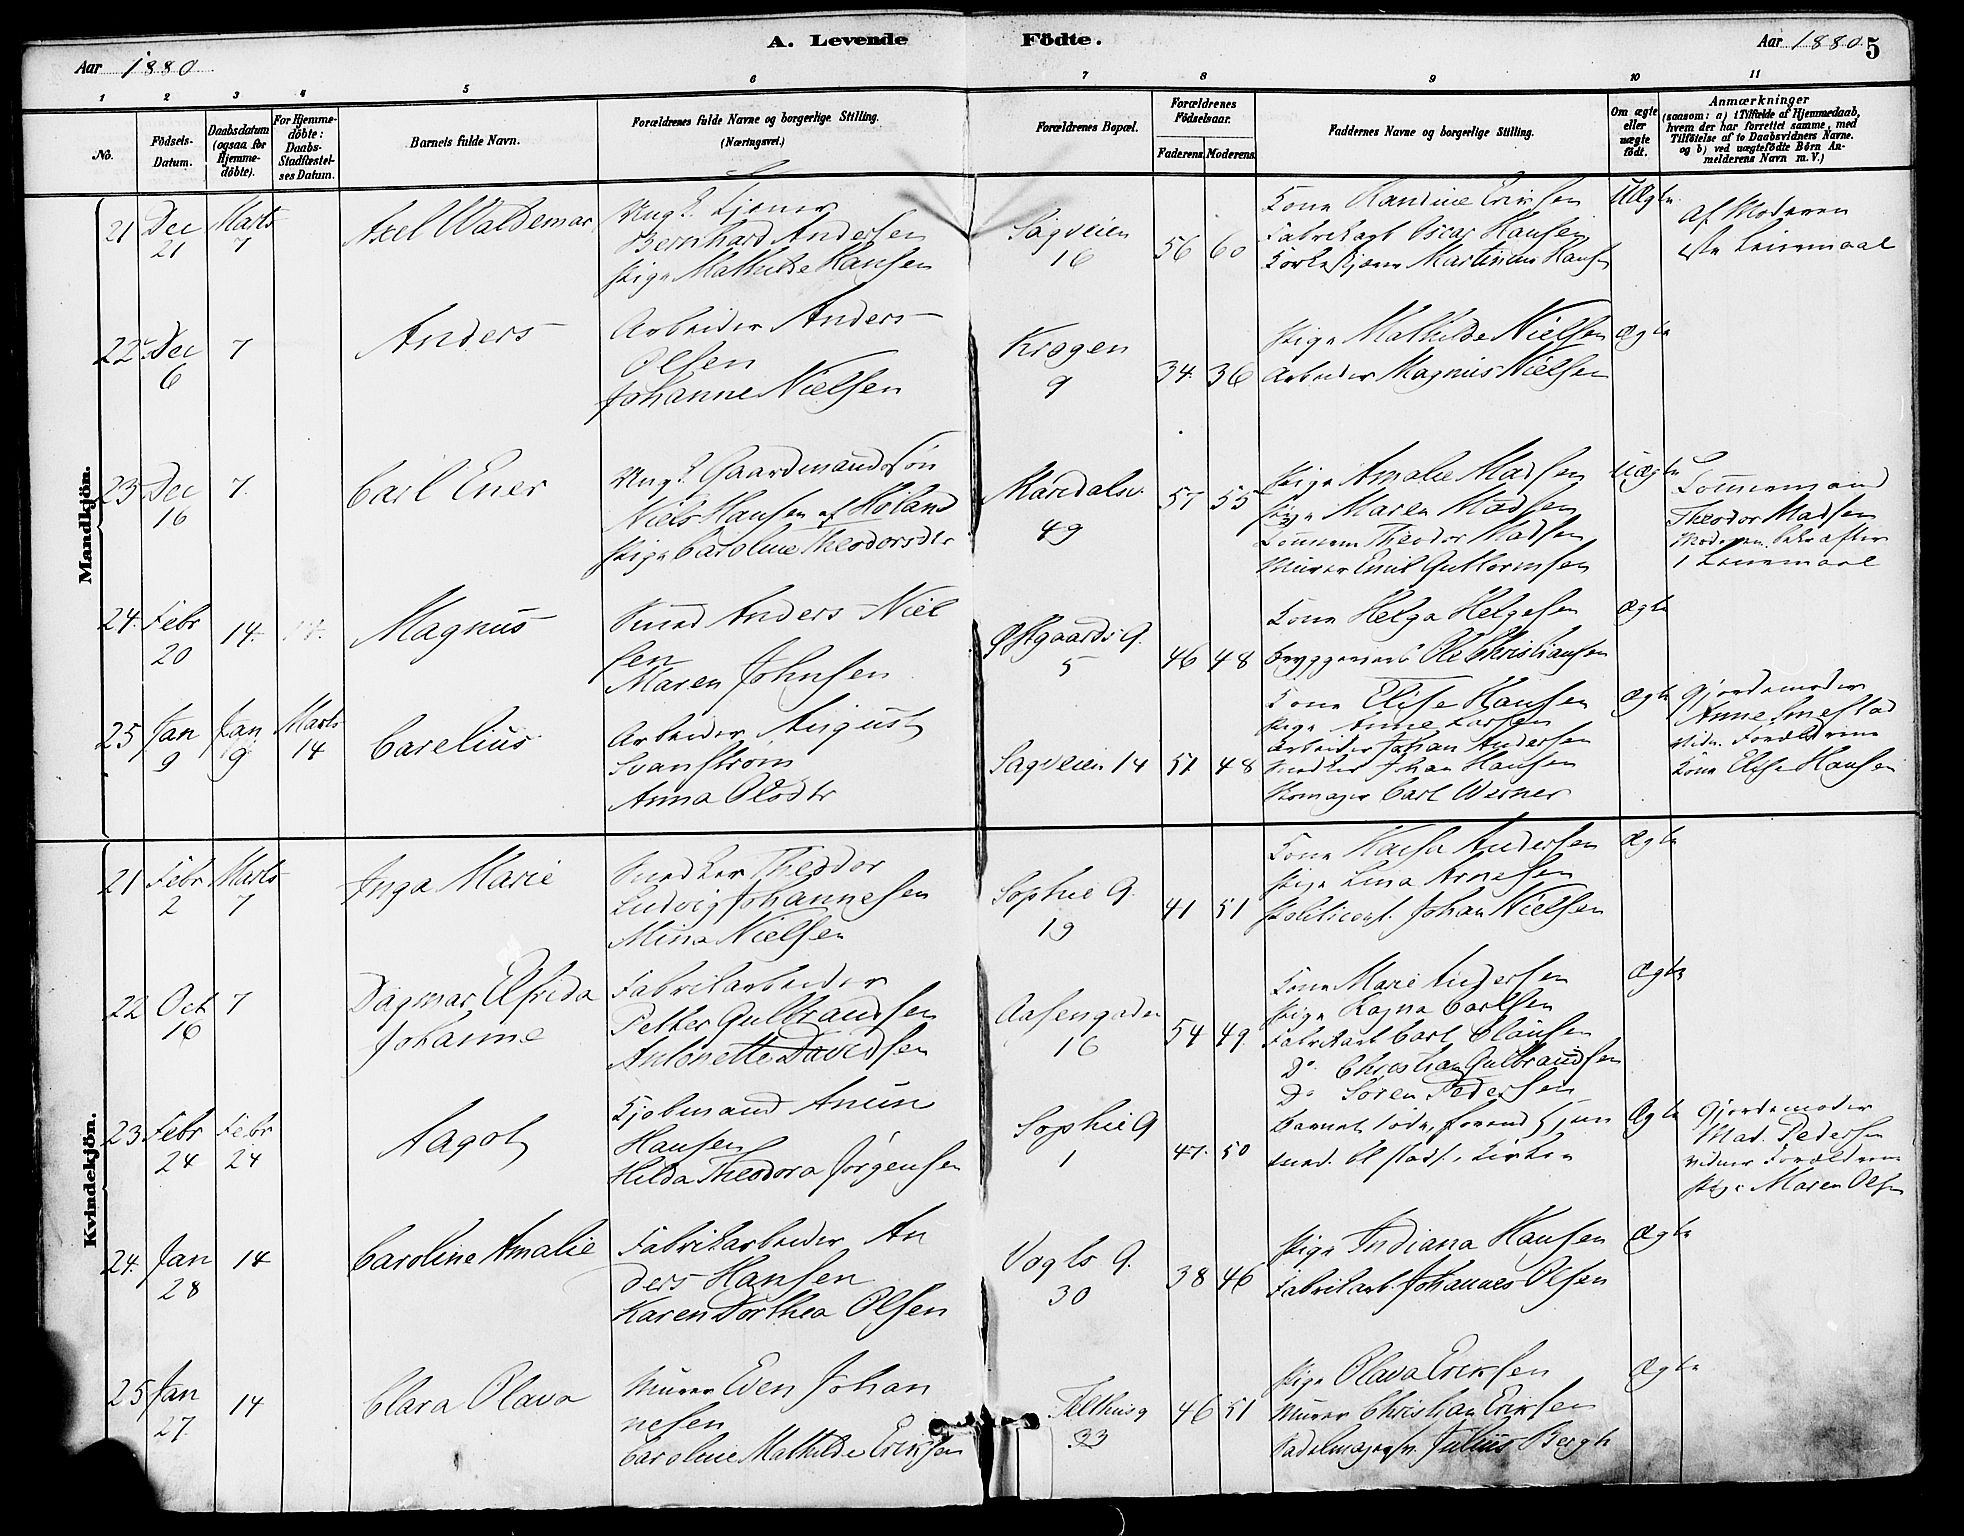 Aar 1880
A. Levende Födte.
Aar 1880
5
1 2 3 4 5 6 7 8 9 10 11
No.
Födsels-
Datum.
Daabsdatum
(ogsaa for
Hjemme-
döbte).
For Hjemme-
döbte:
Daabs-
Stadfæstel-
ses Datum.
Barnets fulde Navn.
Forældrenes fulde Navne og borgerlige Stilling.
(Næringsvei.)
Forældrenes Bopæl.
Forældrenes
Födselsaar.
Faderens. Moderens.
Faddernes Navne og borgerlige Stilling.
Om ægte
eller
uægte
födt.
Anmærkninger
(saasom: a) i Tilfælde af Hjemmedaab,
hvem der har forrettet samme, med
Tilföielse af to Daabsvidners Navne.
og b) ved uægtefödte Börn An-
melderens Navn m. V.)
Mandkjön.
21 Dec 21
Marts 7
Axel Waldemar
Ungk. Tjener
Bernhard Andersen
Pige Mathilde Hansen
Sagveien
16
56 60
Kone Randine Eriksen
Fabrikarb Oscar Hansen
Martinius Hansen
Uægte
Af Moderen
1ste Leiermaal
22 Dec 6
7
Anders
Arbeider Anders
Olsen
Johanne Nielsen
Krogen
9
34 36
Pige Mathilde Nielsen
Arbeider Magnus Nielsen
ægte
23 Dec 16
7
Carl Ener
Ungk. Gaardmandssön
Niels Hansen af Höland
Pige Caroline Theodorsdtr
Maridalsv.
49
57 55
Pige Amalie Madsen
Pige Maren Madsen
Theodor Madsen
Murer Emil Guttormsen
Uægte
Theodor Madsen
1 Leiermaal
24 Febr 20
14
Magnus
Smed Anders Niel
sen
Maren Johnsen
Østgaards G.
5
46 48
Kone Helga Helgesen
Bryggeriarb Ole Christiansen
ægte
25 Jan 9
Jan 9
Marts 14
Carelius
Arbeider August
Svanström
Anna Olsdtr
Sagveien 14
51 48
Kone Elise Hansen
Pige Anne Larsen
Arbeider Johan Andersen
Snedker Johan Hansen
Skomager Carl Werner
ægte
Gjordemoder
Anne
Vidn. Forældrene
Kone Elise Hansen
Kvindekjön.
21 Febr 2
Marts 7
Inga Marie
Snedker Theodor
Ludvig Johannesen
Mina Nielsen
Sophie G.
19
41 51
Kone Andersen
Pige Lina Arnesen
Politiconst. Johan Nielsen
ægte
22 Oct 16
7
Dagmar Elfrida
Johanne
Fabrikarbeider
Petter Gulbrandsen
Antonette Davidsen
Aasengaden
16
54 49
Kone Marie Andersen
Pige Ragna Carlsen
Fabrikarb Carl Clausen
Do Christian Gulbrandsen
Do Sören Pedersen
Ægte
23 Febr 24
Febr 24
Aagot
Kjöbmand Anun
Hansen
Hilda Theodora Jörgensen
Sophie G
1
47 50
Barnet döde, forend
Stadf. i Kirken
Ægte
Gjordemoder
Mad. Pedersen
Vidner Forældrene
Pige Maren Olsen
24 Jan 28
14
Caroline Amalie
Fabrikarbeider An
ders Hansen
Karen Dorthea Olsen
Vogts G.
30
38 46
Pige Indiana Hansen
Fabrikarb. Johannes Olsen
Ægte
25 Jan 27
14
Clara Olava
Murer Even Johan
nesen
Caroline Mathilde Eriksen
Telthusg
33
46 51
Pige Olava Eriksen
Murer Christian Eriksen
Sadelmagersv. Julius Bergh
Ægte